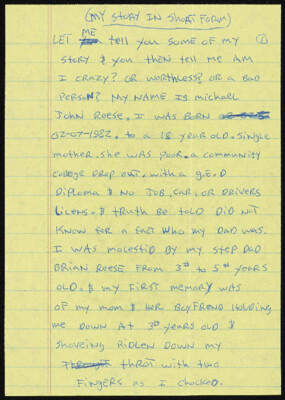 (MY STORY IN SHORT FORUM)
LET ME tell you SOME OF MY ①
STORY & YOU THEN TELL ME AM
I CRAZY? OR WORTHLESS? OR A BAD
PERSON? MY NAME IS michael
JOHN REESE. I WAS BORN
02-07-1982. to A 18 YEAR OLD. SINGLE
mother. she WAS POOR. A community
COllege DROP OUT. with A G.E.D
DIPLOMA & NO JOB, CAR, OR DRIVERS
LICENS. & TRUTH BE TOLD DID NOT
KNOW FOR A FACT WHO MY DAD WAS.
I WAS MOLESTID BY MY STEP DAD
BRIAN REESE FROM 3rd to 5th YEARS
OLD. & MY FIRST MEMORY WAS
OF MY MOM & HER BOYFREND HOLDING
me DOWN AT 3rd YEARS OLD &
SHOVEING RIDLEN DOWN MY
THROT with TWO
FINGERS AS I CHOCKED.